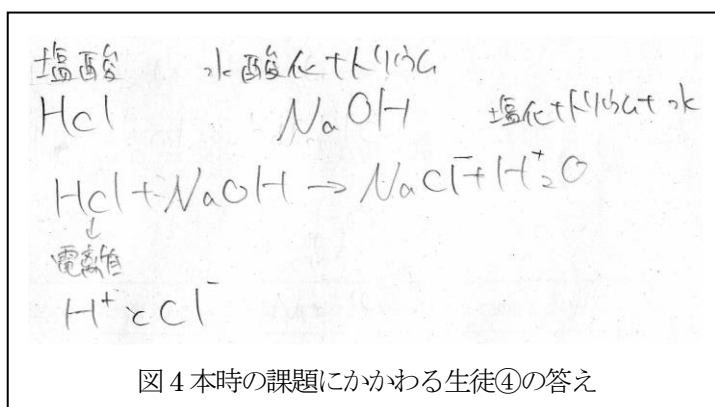 塩酸 水酸化ナトリウム
HCl NaOH 塩化ナトリウム+水
HCl+NaOH→NaCl⁻+H⁺₂O
↓
電離
H⁺とCl⁻
図4本時の課題にかかわる生徒④の答え